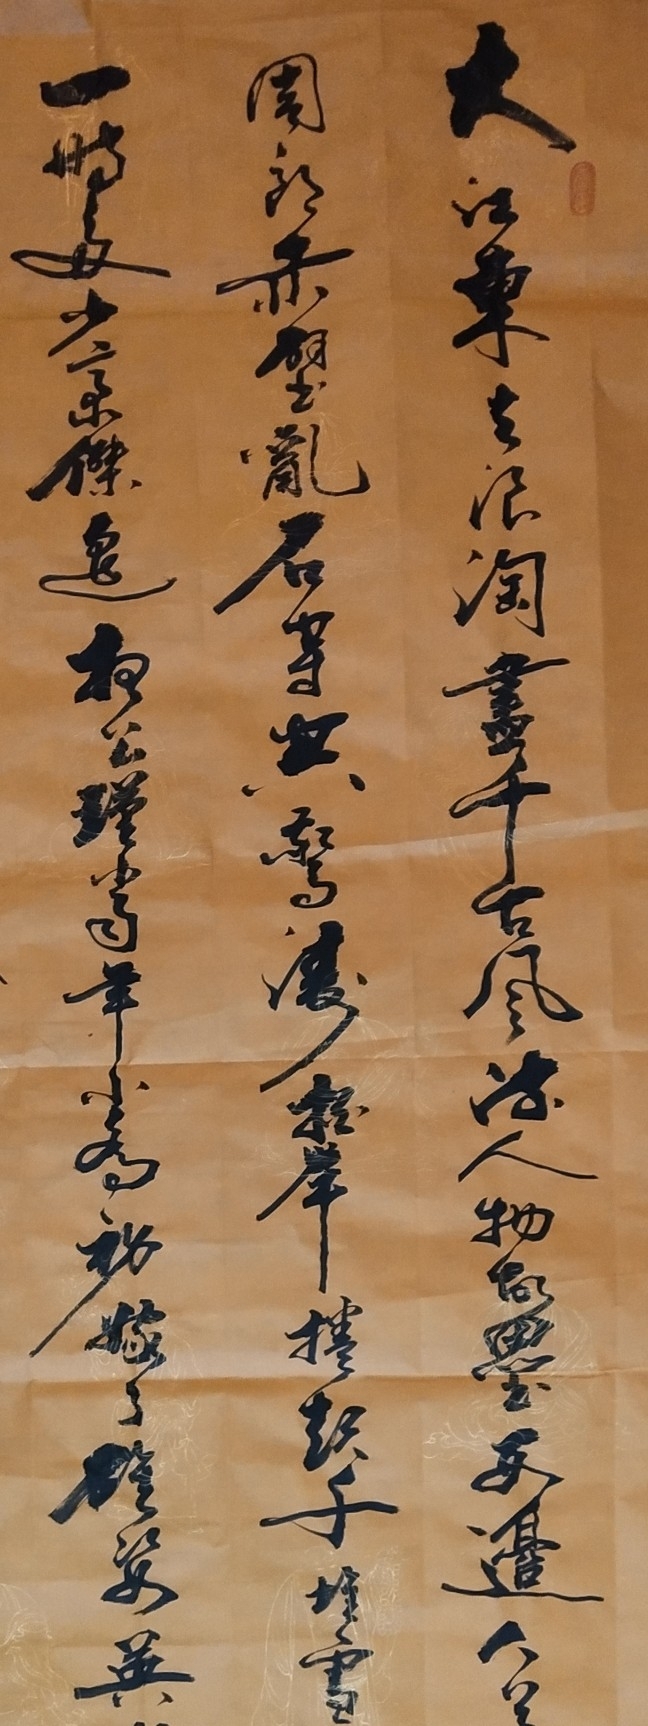 大江東去浪淘盡千古風流人物故壘西邊人
周郎赤壁亂石驚濤岸捲起千堆雪
一時多少豪傑遙想公瑾當年小喬初嫁了雄姿英